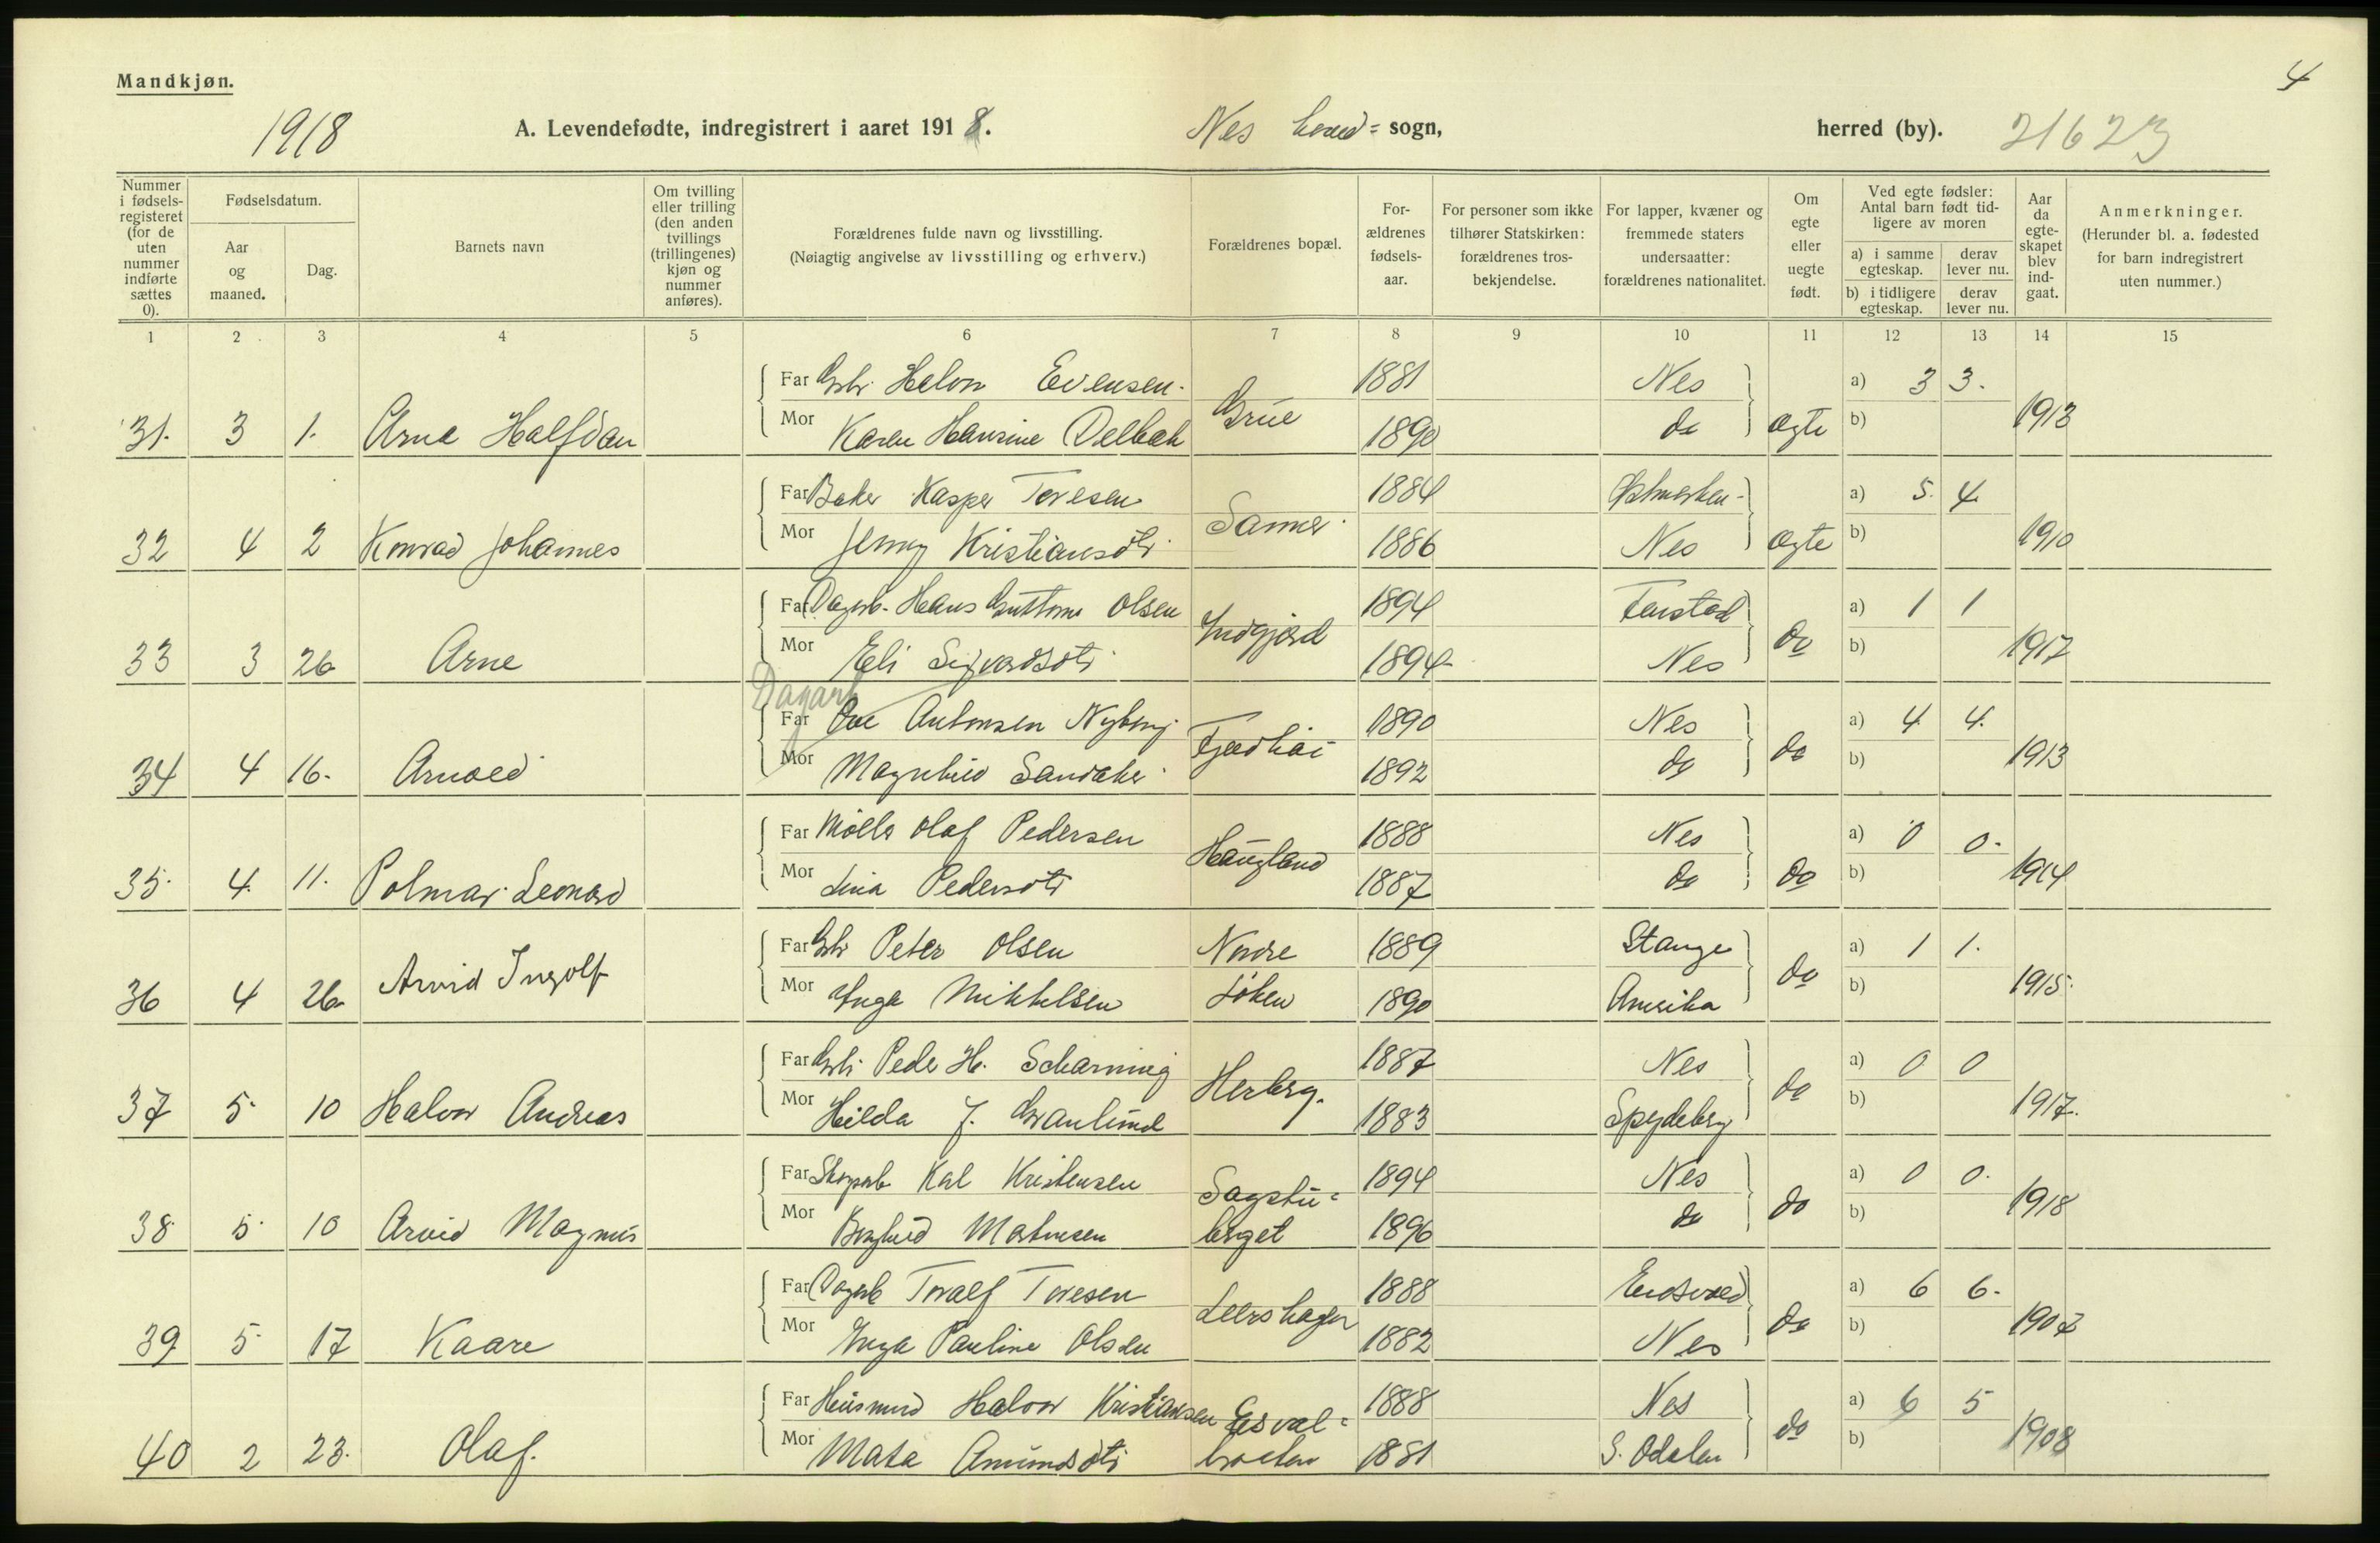 Mandkjøn.
4
1918 A. Levendefødte, indregistrert i aaret 1918. Nes hoved= sogn, herred (by). 21623
Nummer i fødsels-registeret (for de uten nummer indførte sættes 0). Fødselsdatum. Aar og maaned. Dag. Barnets navn Om tvilling eller trilling (den anden tvillings (trillingenes) kjøn og nummer anføres). Forældrenes fulde navn og livsstilling. (Nøiagtig angivelse av livsstilling og erhverv.) Forældrenes bopæl. For-ældrenes fødsels-aar. For personer som ikke tilhører Statskirken: forældrenes tros-bekjendelse. For lapper, kvæner og fremmede staters undersaatter: forældrenes nationalitet. Om egte eller uegte født. Ved egte fødsler: Antal barn født tid-ligere av moren a) i samme egteskap. derav lever nu. b) i tidligere egteskap. derav lever nu. Aar da egte-skapet blev ind-gaat. Anmerkninger. (Herunder bl. a. fødested for barn indregistrert uten nummer.)
1 2 3 4 5 6 7 8 9 10 11 12 13 14 15
Far Gbr. Halvor Evensen. 1881 Nes a) 3 3.
31. 3 1. Arne Halfdan Mor Karen Hansine Delbæk Grue 1890 do ægte b) 1913
Far Baker Kasper Toresen 1884 Østmarken a) 5. 4.
32 4 2 Konrad Johannes Mor Jenny Kristiansdtr. Sanner 1886 Nes ægte b) 1910
Far Dagarb. Hans Guttorm Olsen 1894 Fenstad a) 1 1
33 3 26 Arne Mor Eli Sigvardsdtr Indgjerd 1894 Nes do b) 1917
Dagarb
Far Ove Antonsen Nyberg 1890 Nes a) 4 4.
34 4 16. Arnold Mor Magnhild Sandaker 1892 do do b) 1913
Far Møller Olaf Pedersen 1888 Nes a) 0 0.
35. 4. 11. Polmar Leonard Mor Lina Pedersdtr Haugland 1887 do do b) 1914
Far Gbr Peter Olsen Nordre 1889 Stange a) 1 1.
36 4 26 Arvid Ingolf Mor Inga Mikkelsen Løken 1890 Amerika do b) 1915.
Far Gbr. Peder H. Scharning 1887 Nes a) 0 0
37 5. 10 Halvor Andreas Mor Hilda J. Granlund Herberg. 1883 Spydeberg do b) 1917.
Far Skogarb Karl Kristensen Sagstu= 1894 Nes a) 0 0.
38. 5. 10 Arvid Magnus Mor Borghild Martinsen berget 1896 do do b) 1918
Far Dagarb Toralf Toresen 1888 Eidsvold a) 6 6.
39 5. 17 Kaare Mor Inga Pauline Olsen Leershagen 1882 Nes do b) 1907
Far Husmand Halvor Kristiansen Esval= 1888 Nes a) 6 5
40 2 23. Olaf. Mor Mata Amundsdtr 1881 S. Odalen do b) 1908